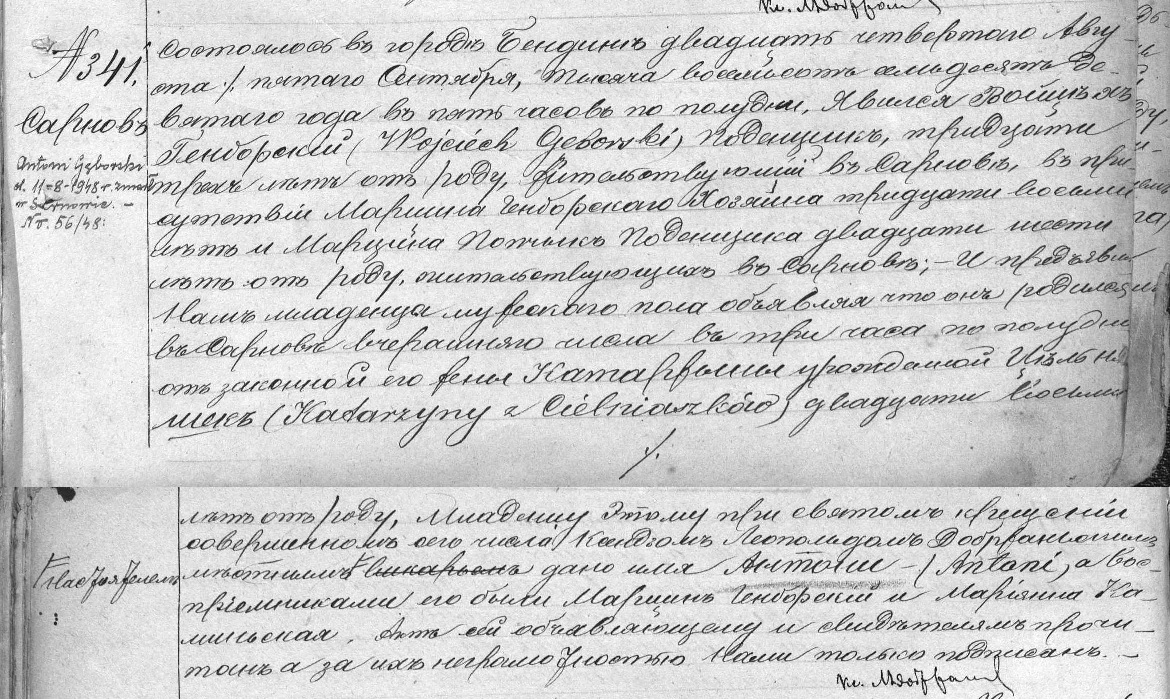 № 341.
Сарновъ
Antoni Gęborski
d. 11-8-1948 r. zmarł
w Sarnowie. –
Nr. 56/48.
состоялось въ городѣ Бендинѣ двадцать четвертаго Авгу-
ста /. пятаго Сентября, тысяча восемьсотъ семьдесятъ де-
вятаго года въ пять часовъ по полудни. Явился Войцѣхъ
Генборскій (Wojciech Gęborski) Поденщикъ, тридцати
трехъ лѣтъ отъ роду, жительствующій въ Сарновѣ, въ при-
сутствіи Марцина Генборскаго Хозяина тридцати восьми
лѣтъ и Марцина Поденщика двадцати шести
лѣтъ отъ роду, жительствующихъ въ Сарновѣ; – И предъявилъ
Намъ младенца мужескаго пола объявляя что онъ родился
въ Сарновѣ вчерашняго числа въ три часа по полудни
отъ законной его жены Катаржины урожденной Цѣльня-
шекъ (Katarzyny z Cielniaszków) двадцати восьми
/.
лѣтъ отъ роду, Младенцу Этому при святомъ крещеніи
совершенномъ сего числа Ксендзомъ Леопольдомъ Добржанскимъ
Настоятелемъ
мѣстнымъ Викаріемъ дано имя Антони – (Antoni), а вос-
пріемниками его были Марцинъ Генборскій и Маріянна Ка-
миньская. Актъ сей объявляющему и свидѣтелямъ прочи-
танъ а за ихъ неграмотностью Нами только подписанъ. –